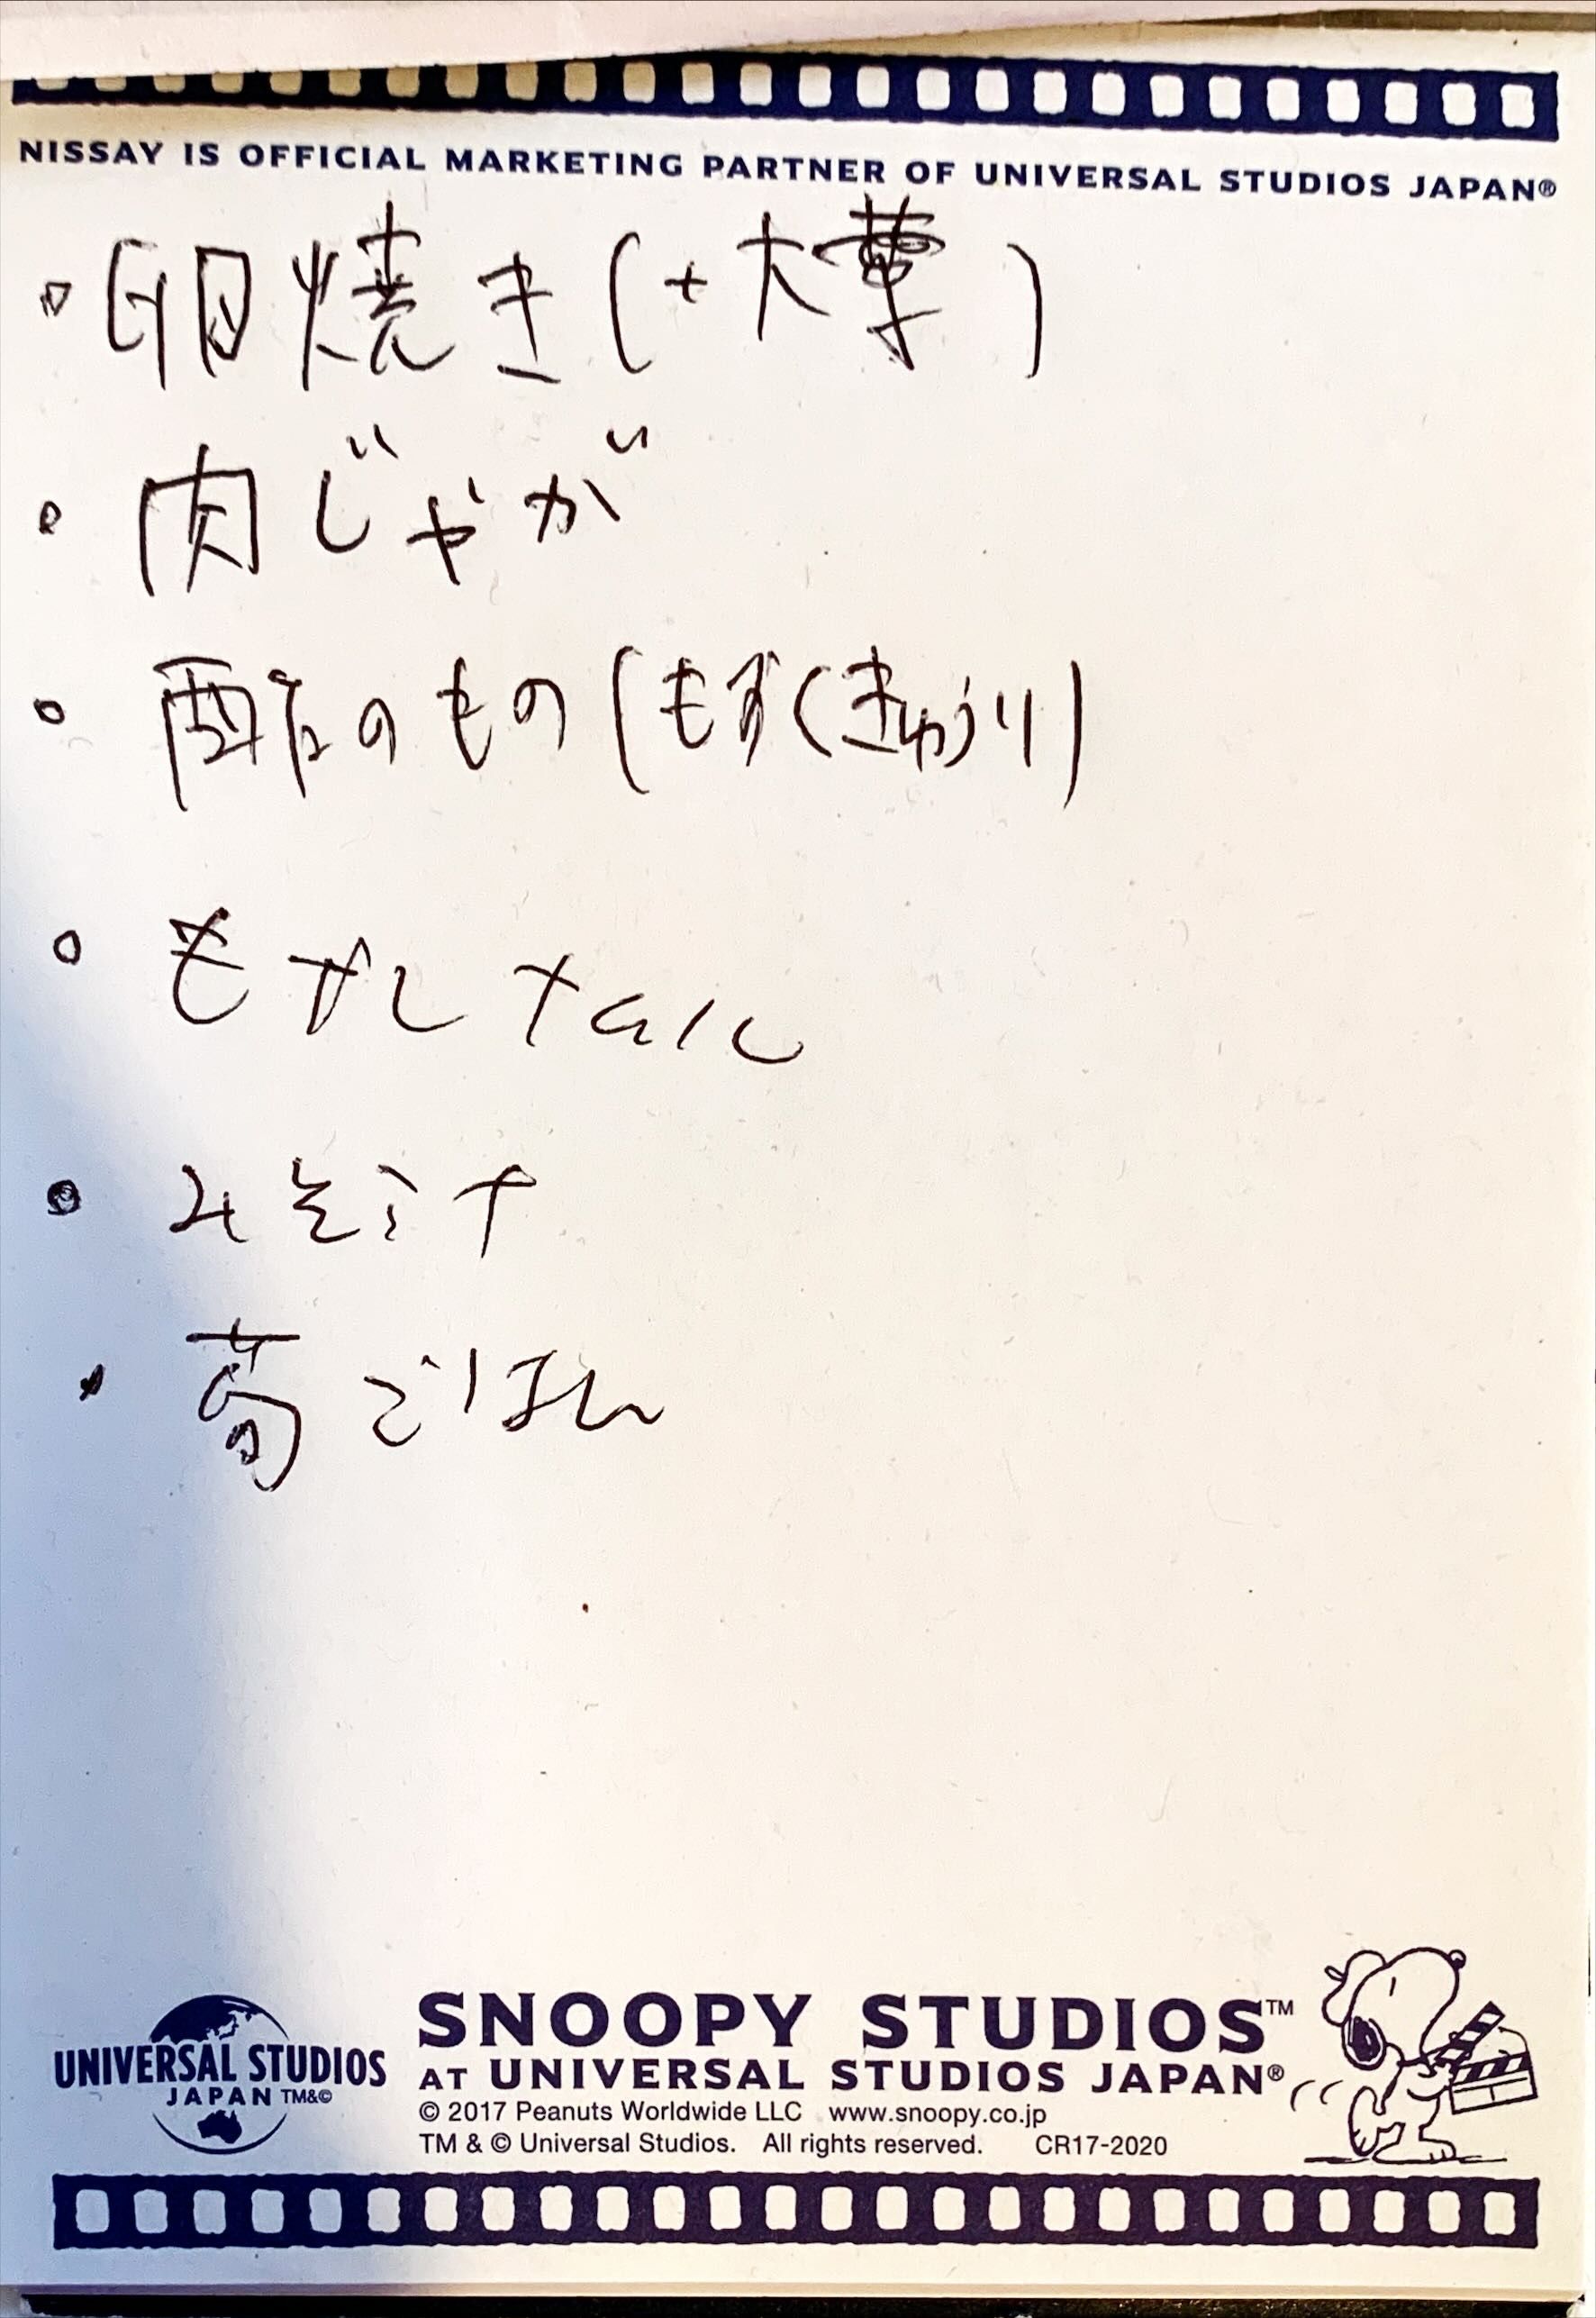 NISSAY IS OFFICIAL MARKETING PARTNER OF UNIVERSAL STUDIOS JAPAN®
・卵焼き(+大葉)
・肉じゃが
・酢のもの(もずくきゅうり)
・もやしナムル
・みそ汁
・筍ごはん
UNIVERSAL STUDIOS
JAPAN TM&©
SNOOPY STUDIOS™
AT UNIVERSAL STUDIOS JAPAN®
© 2017 Peanuts Worldwide LLC www.snoopy.co.jp
TM & © Universal Studios. All rights reserved. CR17-2020